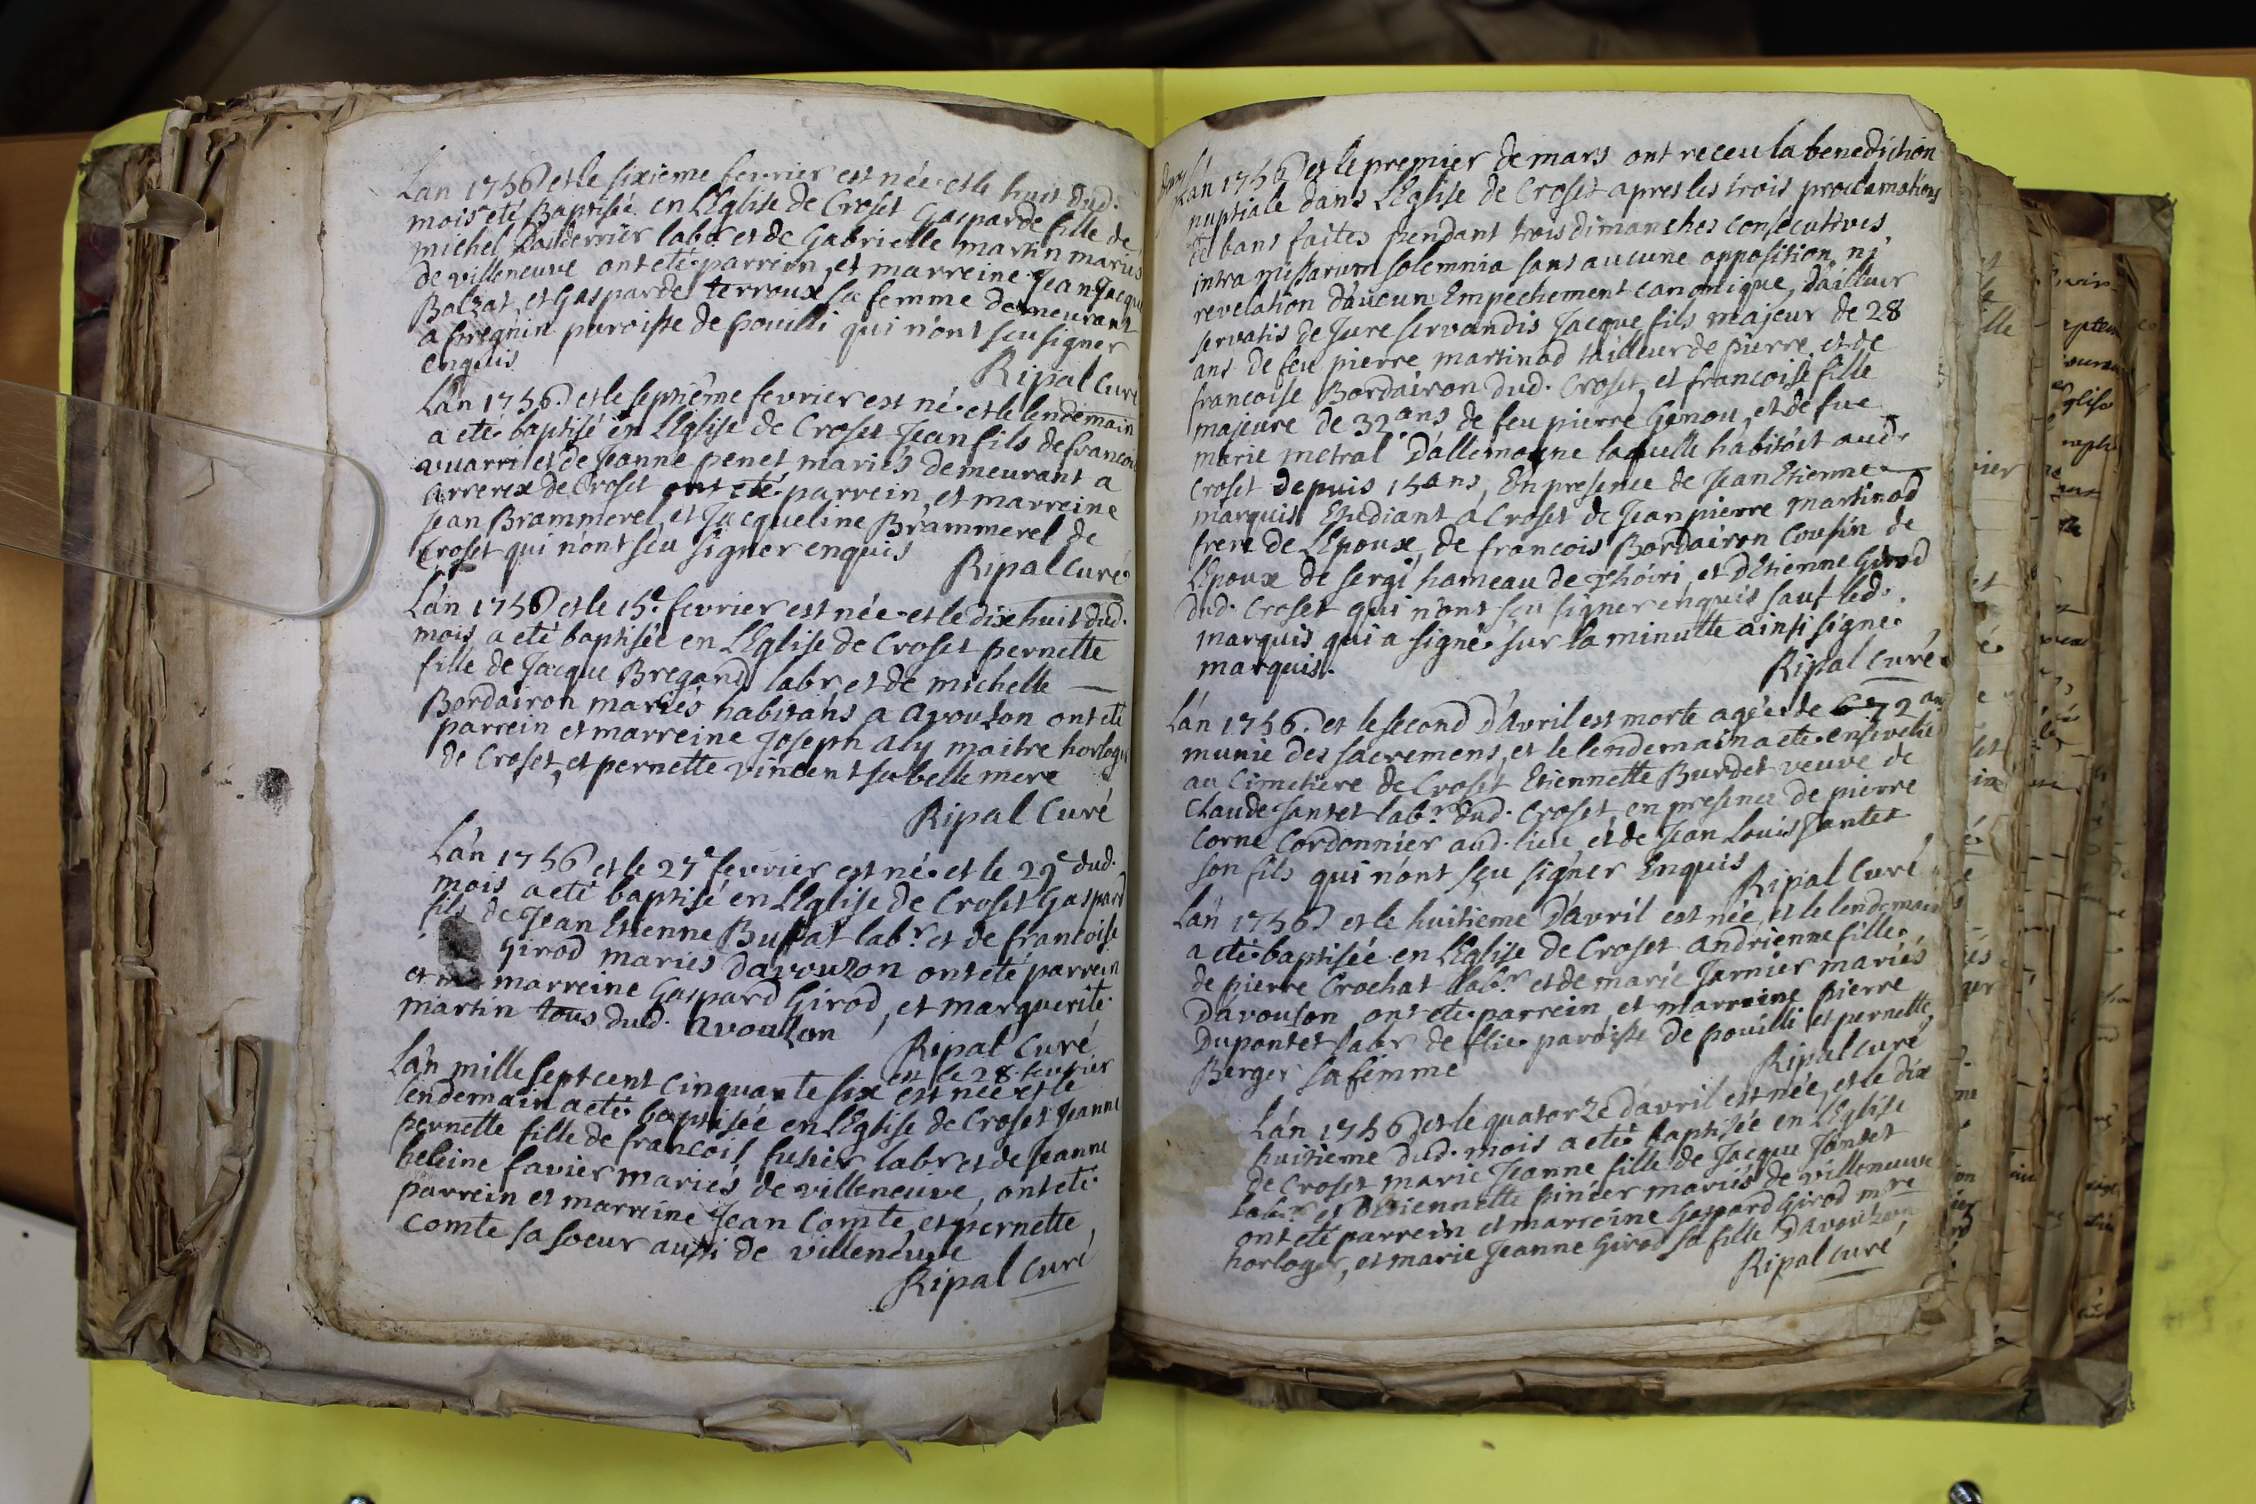 Lan 1756 et le sixieme fevrier est née et le huit dud.
mois eté Baptisée en LEglise de Croset Gasparde fille de
michel dalderrier labr et de Gabrielle martin mariés
de villeneuve ont eté parrein et marreine Jean Jacque
Balzat et Gasparde terroux sa femme demeurant
a bregnin paroisse de pouilli qui n'ont sçu signer
enquis
Ripal Curé
Lan 1756 et le septiême fevrier est né et le lendemain
a eté baptisé en LEglise de Croset Jean fils de francois
vuarri et de Jeanne penet mariés demeurant a
arrerex de Croset ont eté parrein et marreine
Jean Brammerel et Jacqueline Brammerel de
Croset qui n'ont sçu signer enquis
Ripal Curé
Lán 1756 et le 15e fevrier est née et le dix huit dud.
mois a eté baptisée en LEglise de Croset pernette
fille de Jacque Bregand labr et de michelle
Bordairon mariés habitans a avouson ont eté
parrein et marreine Joseph aly maitre horloger
de Croset, et pernette vincent sa belle mere
Ripal Curé
Lán 1756 et le 27e fevrier est né et le 29e dud.
mois a eté baptisé en LEglise de Croset Gaspard
fils de Jean Etienne Buffat labr et de francoise
Girod mariés davouzon ont eté parrein
et marreine Gaspard Girod, et marguerite
martin tous dud. avouzon
Ripal Curé
et le 28 fevrier
Lán mille sept cent cinquante six est née et le
lendemain a eté baptisée en LEglise de Croset Jeanne
pernette fille de francois fusier labr et de Jeanne
heleine favier mariés de villeneuve, ont eté
parrein et marreine Jean Comte, et pernette
Comte sa soeur aussi de villeneuve
Ripal Curé
Lán 1756 et le premier de mars ont receu la benediction
nuptiale dans LEglise de Croset apres les trois proclamations
de bans faites pendant trois dimanches consecutives
intra missarum solemnia sans aucune opposition, ni
revelation d'aucun Empechement canonique, d'ailleur
servatis de Jure servandis Jacque fils majeur de 28
ans de feu pierre martinod tailleur de pierre, et de
francoise Bordairon dud. Croset, et francoise fille
majeure de 32 ans de feu pierre Genou, et de fue
marie metral D'allemogne laquelle habitoit aud.
Croset Depuis 15 ans, En presence de Jean Etienne
marquis Etudiant a Croset de Jean pierre martinod
frere de LEpoux, de francois Bordairon Cousin de
LEpoux de sergi hameau de Thoiri, et dEtienne Girod
dud. Croset qui n'ont sçu signer enquis sauf led.
marquis qui a signé sur la minutte ainsi signe
marquis.
Ripal Curé
Lán 1756 et le second D'avril est morte agée de 72 ans
munie des sacremens, et le lendemain a eté ensevelie
au Cimetiere de Croset Etiennette Burdet veuve de
Claude Jantet labr. dud. Croset, en presence de pierre
Corne Cordonnier aud. lieu, et de Jean Louis Jantet
son fils qui n'ont sçu signer Enquis
Ripal Curé
Lán 1756 et le huitieme D'avril est née, et le lendemain
a eté baptisée en LEglise de Croset andrienne fille
de pierre Crochat labr. et de marie Jarnier mariés
Davouson ont eté parrein et marreine pierre
Dupontet labr de flie paroisse de pouilli et pernette
Berger sa femme
Ripal Curé
Lán 1756 et le quatorze d'avril est née, et le dix
huitieme dud. mois a eté baptisée en LEglise
de Croset marie Jeanne fille de Jacque Jantet
labr. et dEtiennette pinier mariés de villeneuve
ont eté parrein et marreine Gaspard Girod mre
horloger, et marie Jeanne Girod sa fille Davouzon
Ripal Curé